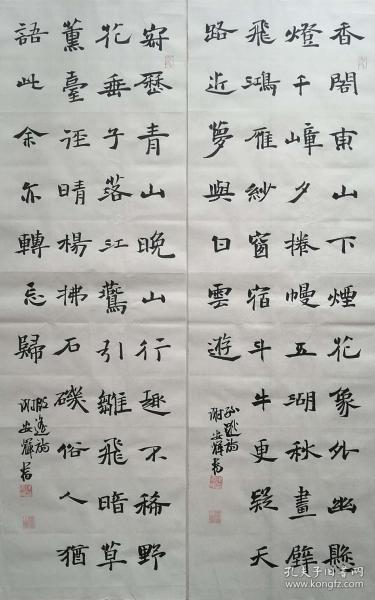 香閣東山下煙花象外幽懸
燈千嶂夕捲幔五湖秋畫壁
飛鴻雁紗窗宿斗牛更疑天
路近夢與白雲遊
孫逖詩
謝安輝書
寂歷青山晚山行趣不稀野
花垂子落江鷰引雛飛暗草
薰臺徑晴楊拂石磯俗人猶
語此余亦轉忘歸
殷遙詩
謝安輝書
孔夫子旧书网